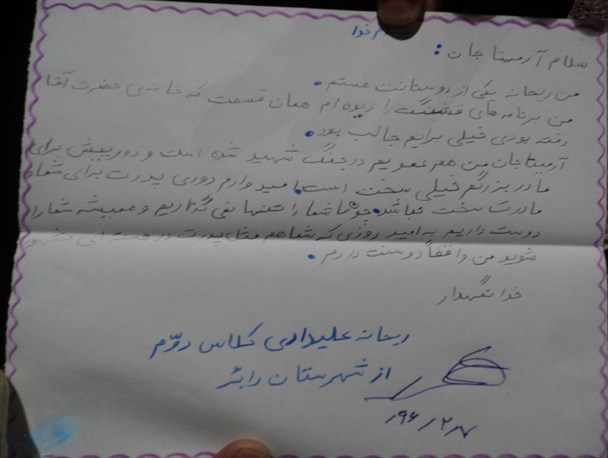 بنام خدا
سلام آرمیتا جان :
من ریحانه یکی از دوستانت هستم.
من برنامه های قشنگت را دیده ام همان قسمت که خانه ی حضرت آقا
رفته بودی خیلی برایم جالب بود.
آرمیتا جان من هم عمویم در جنگ شهید شده است و دوریش برای
مادربزرگم خیلی سخت است. امیدوارم دوری پدرت برای شما و
مادرت سخت نباشد چون ما شما را تنها نمی گذاریم و همیشه شما را
دوست داریم به امید روزی که شما هم مثل پدرت
شوید من واقعاً دوستت دارم.
خدانگهدار
ریحانه علیدادی کلاس دوّم
از شهرستان رابُر